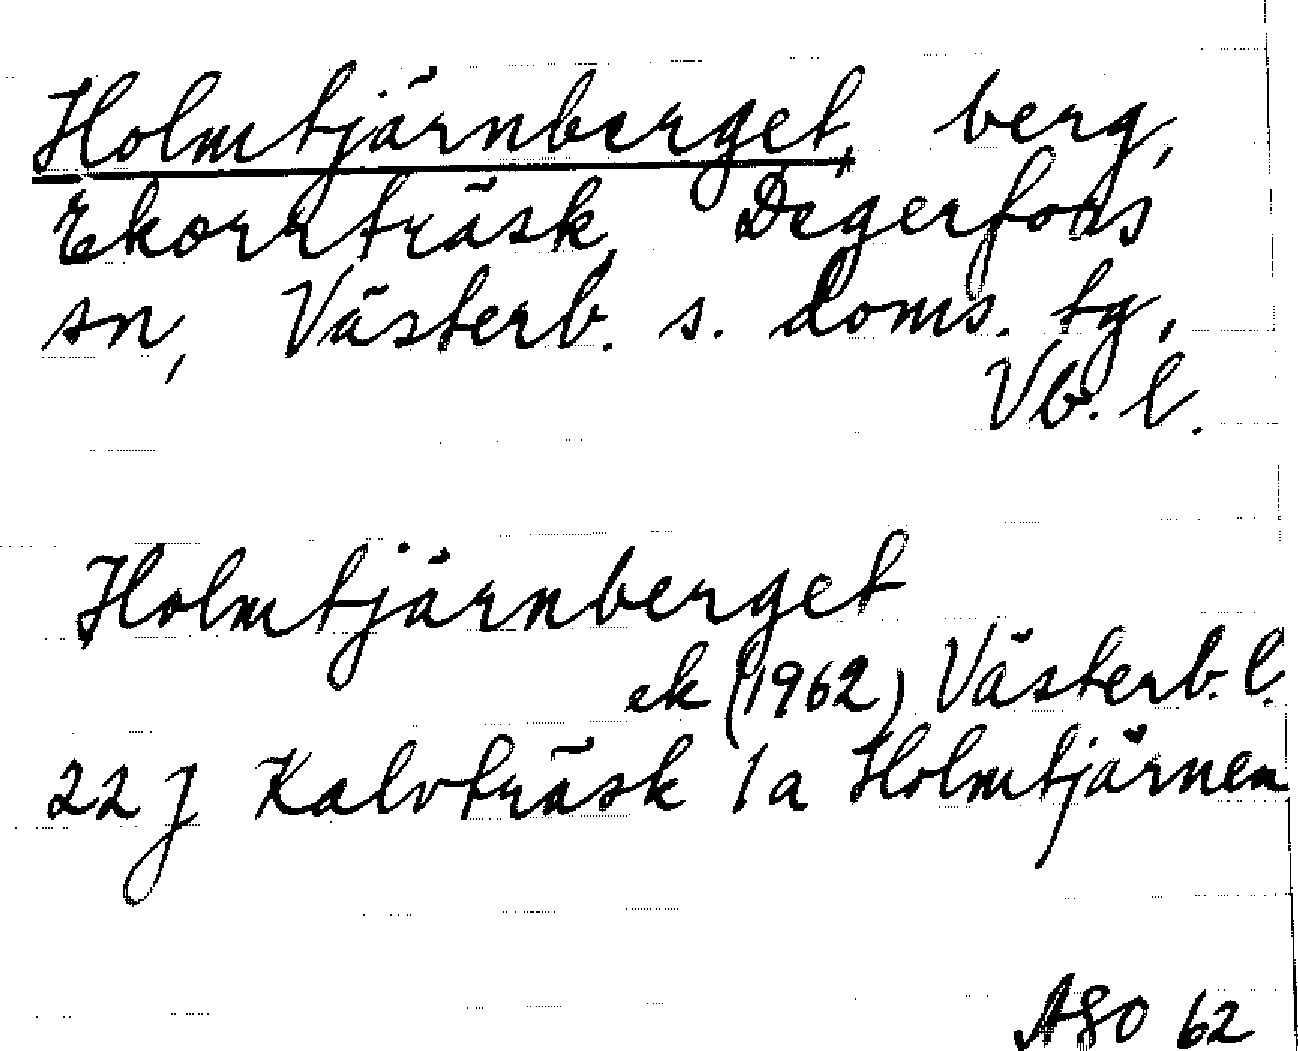 Holmtjärnberget, berg,
Ekorrträsk, Degerfors
sn, Västerb. s. doms. tg,
Vb. l.
Holmtjärnberget
ek (1962) Västerb. l.
22 J Kalvträsk 1a Holmtjärnen
ASO 62